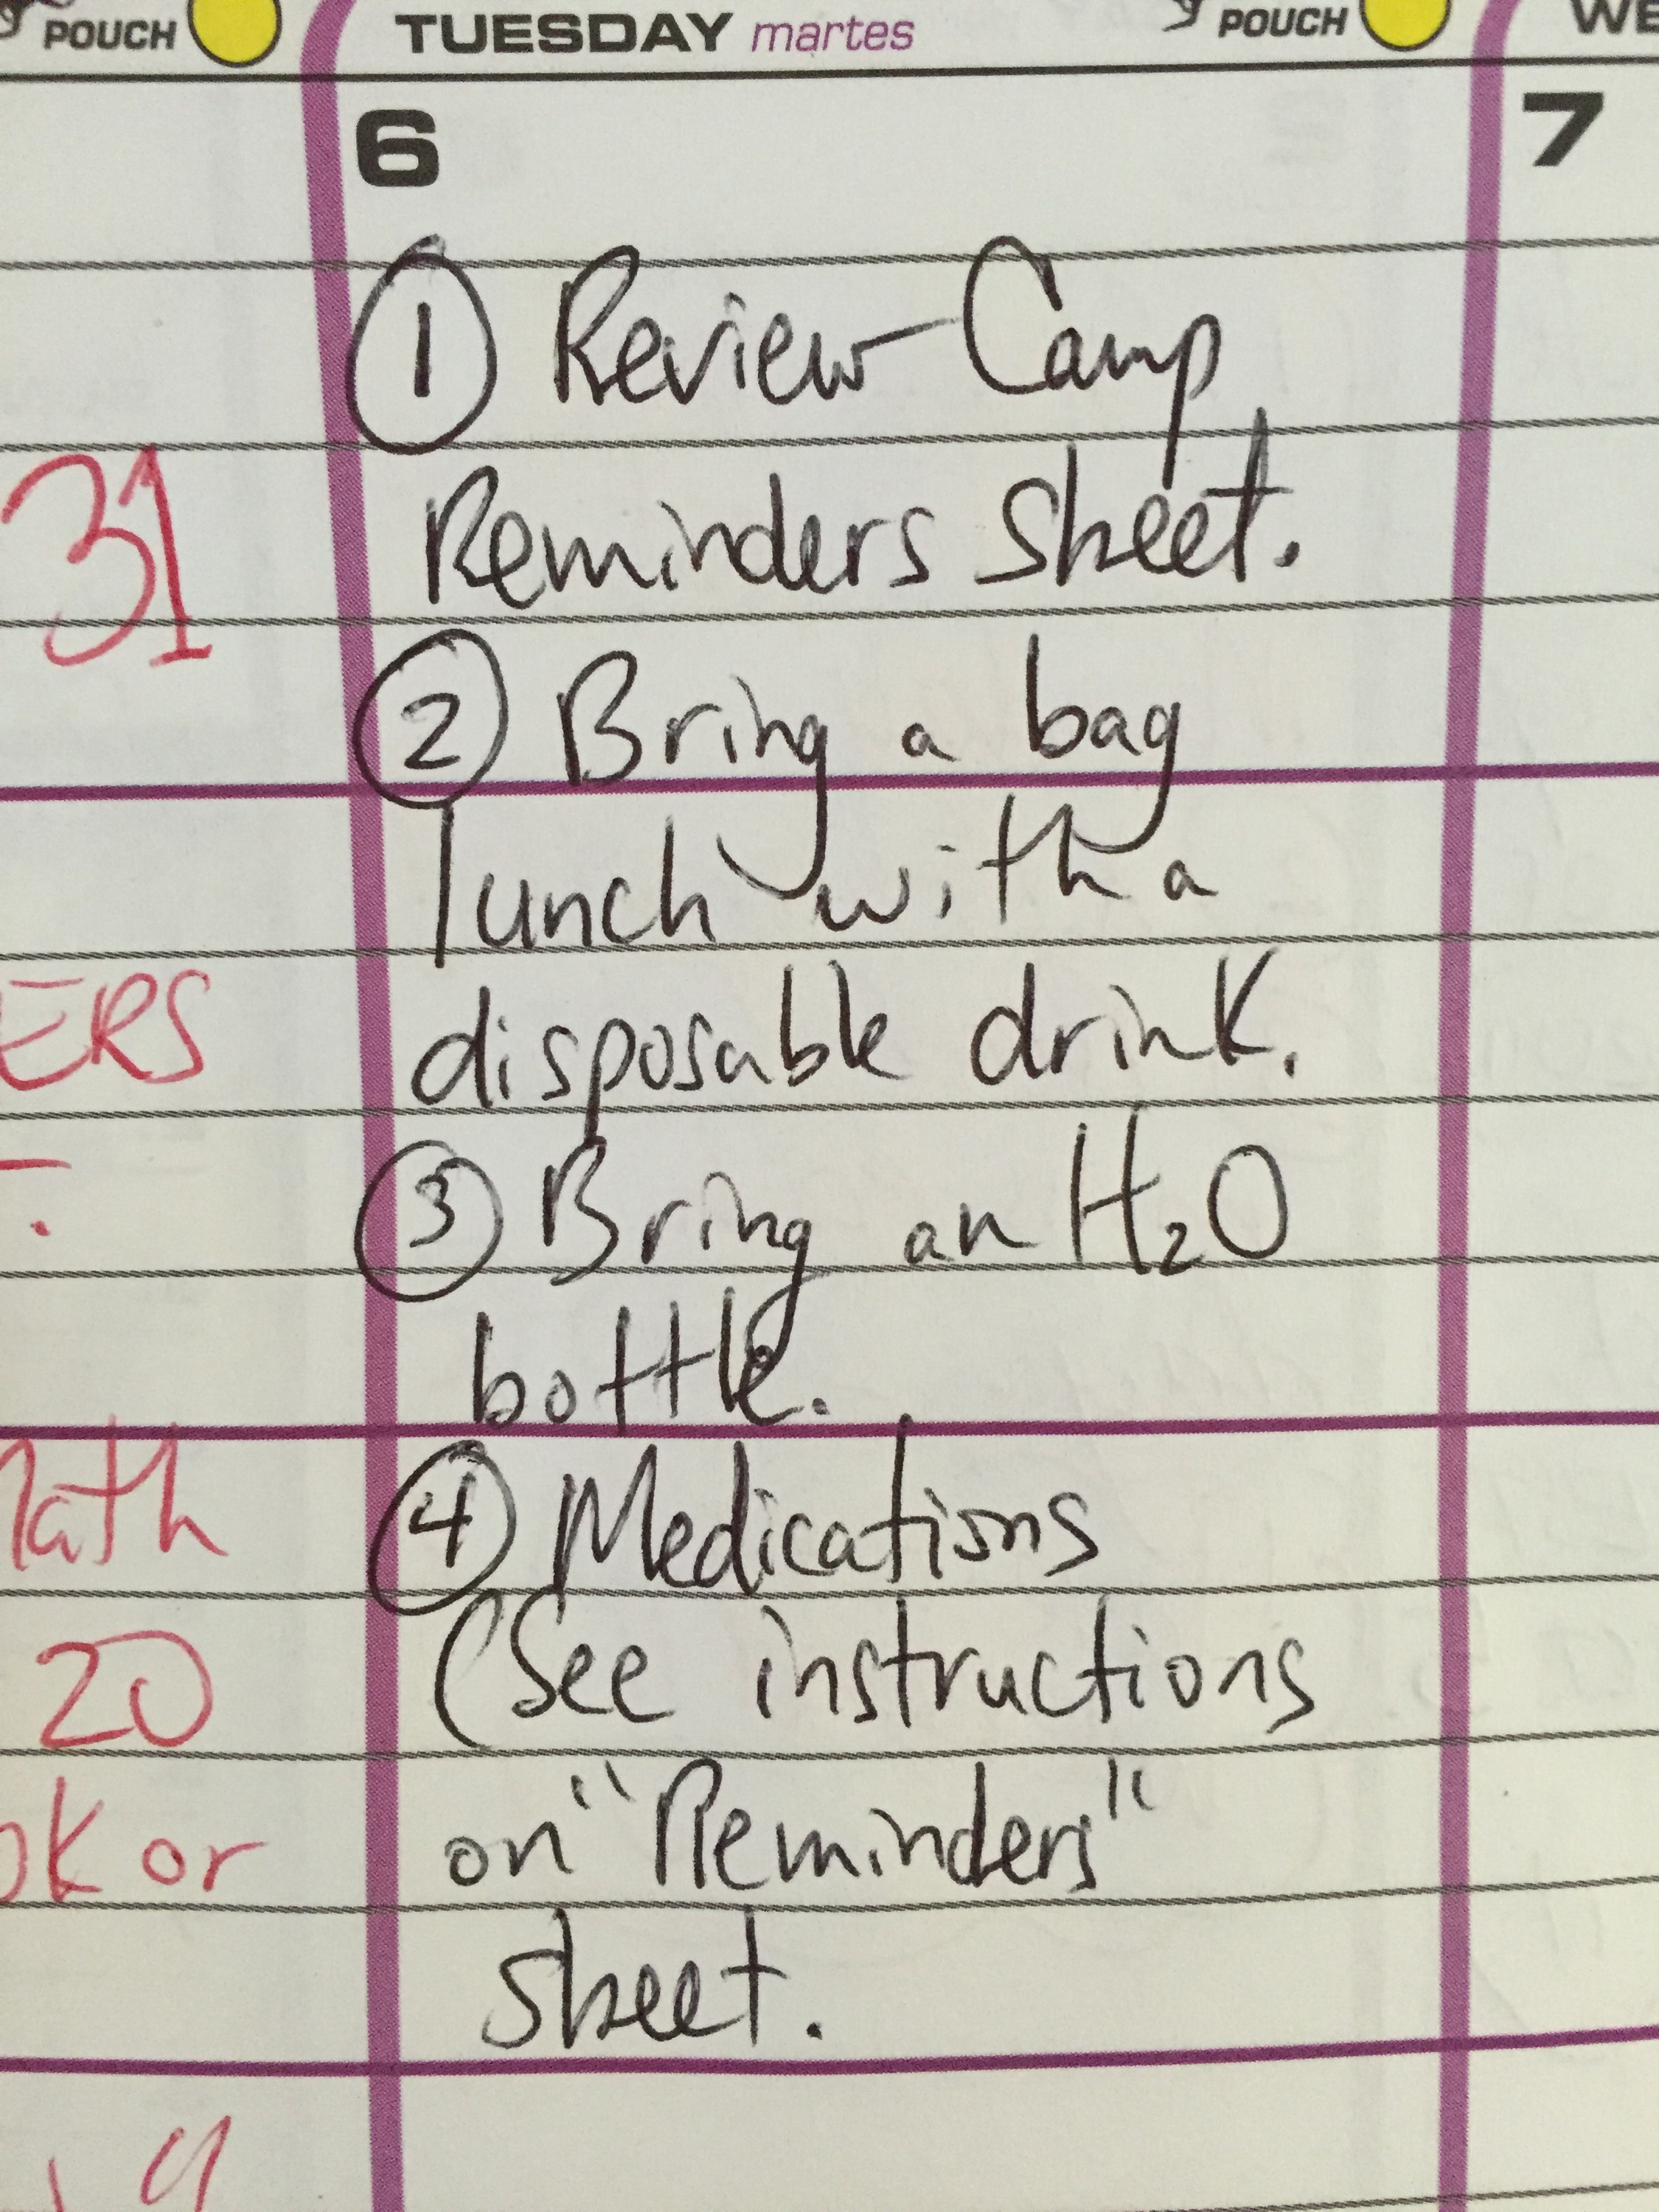 POUCH TUESDAY martes POUCH
6 7
① Review Camp
Reminders sheet.
31
② Bring a bag
lunch with a
disposable drink.
ERS
③ Bring an H₂O
bottle.
④ Medications
(See instructions
20
on "Reminders"
or
sheet.